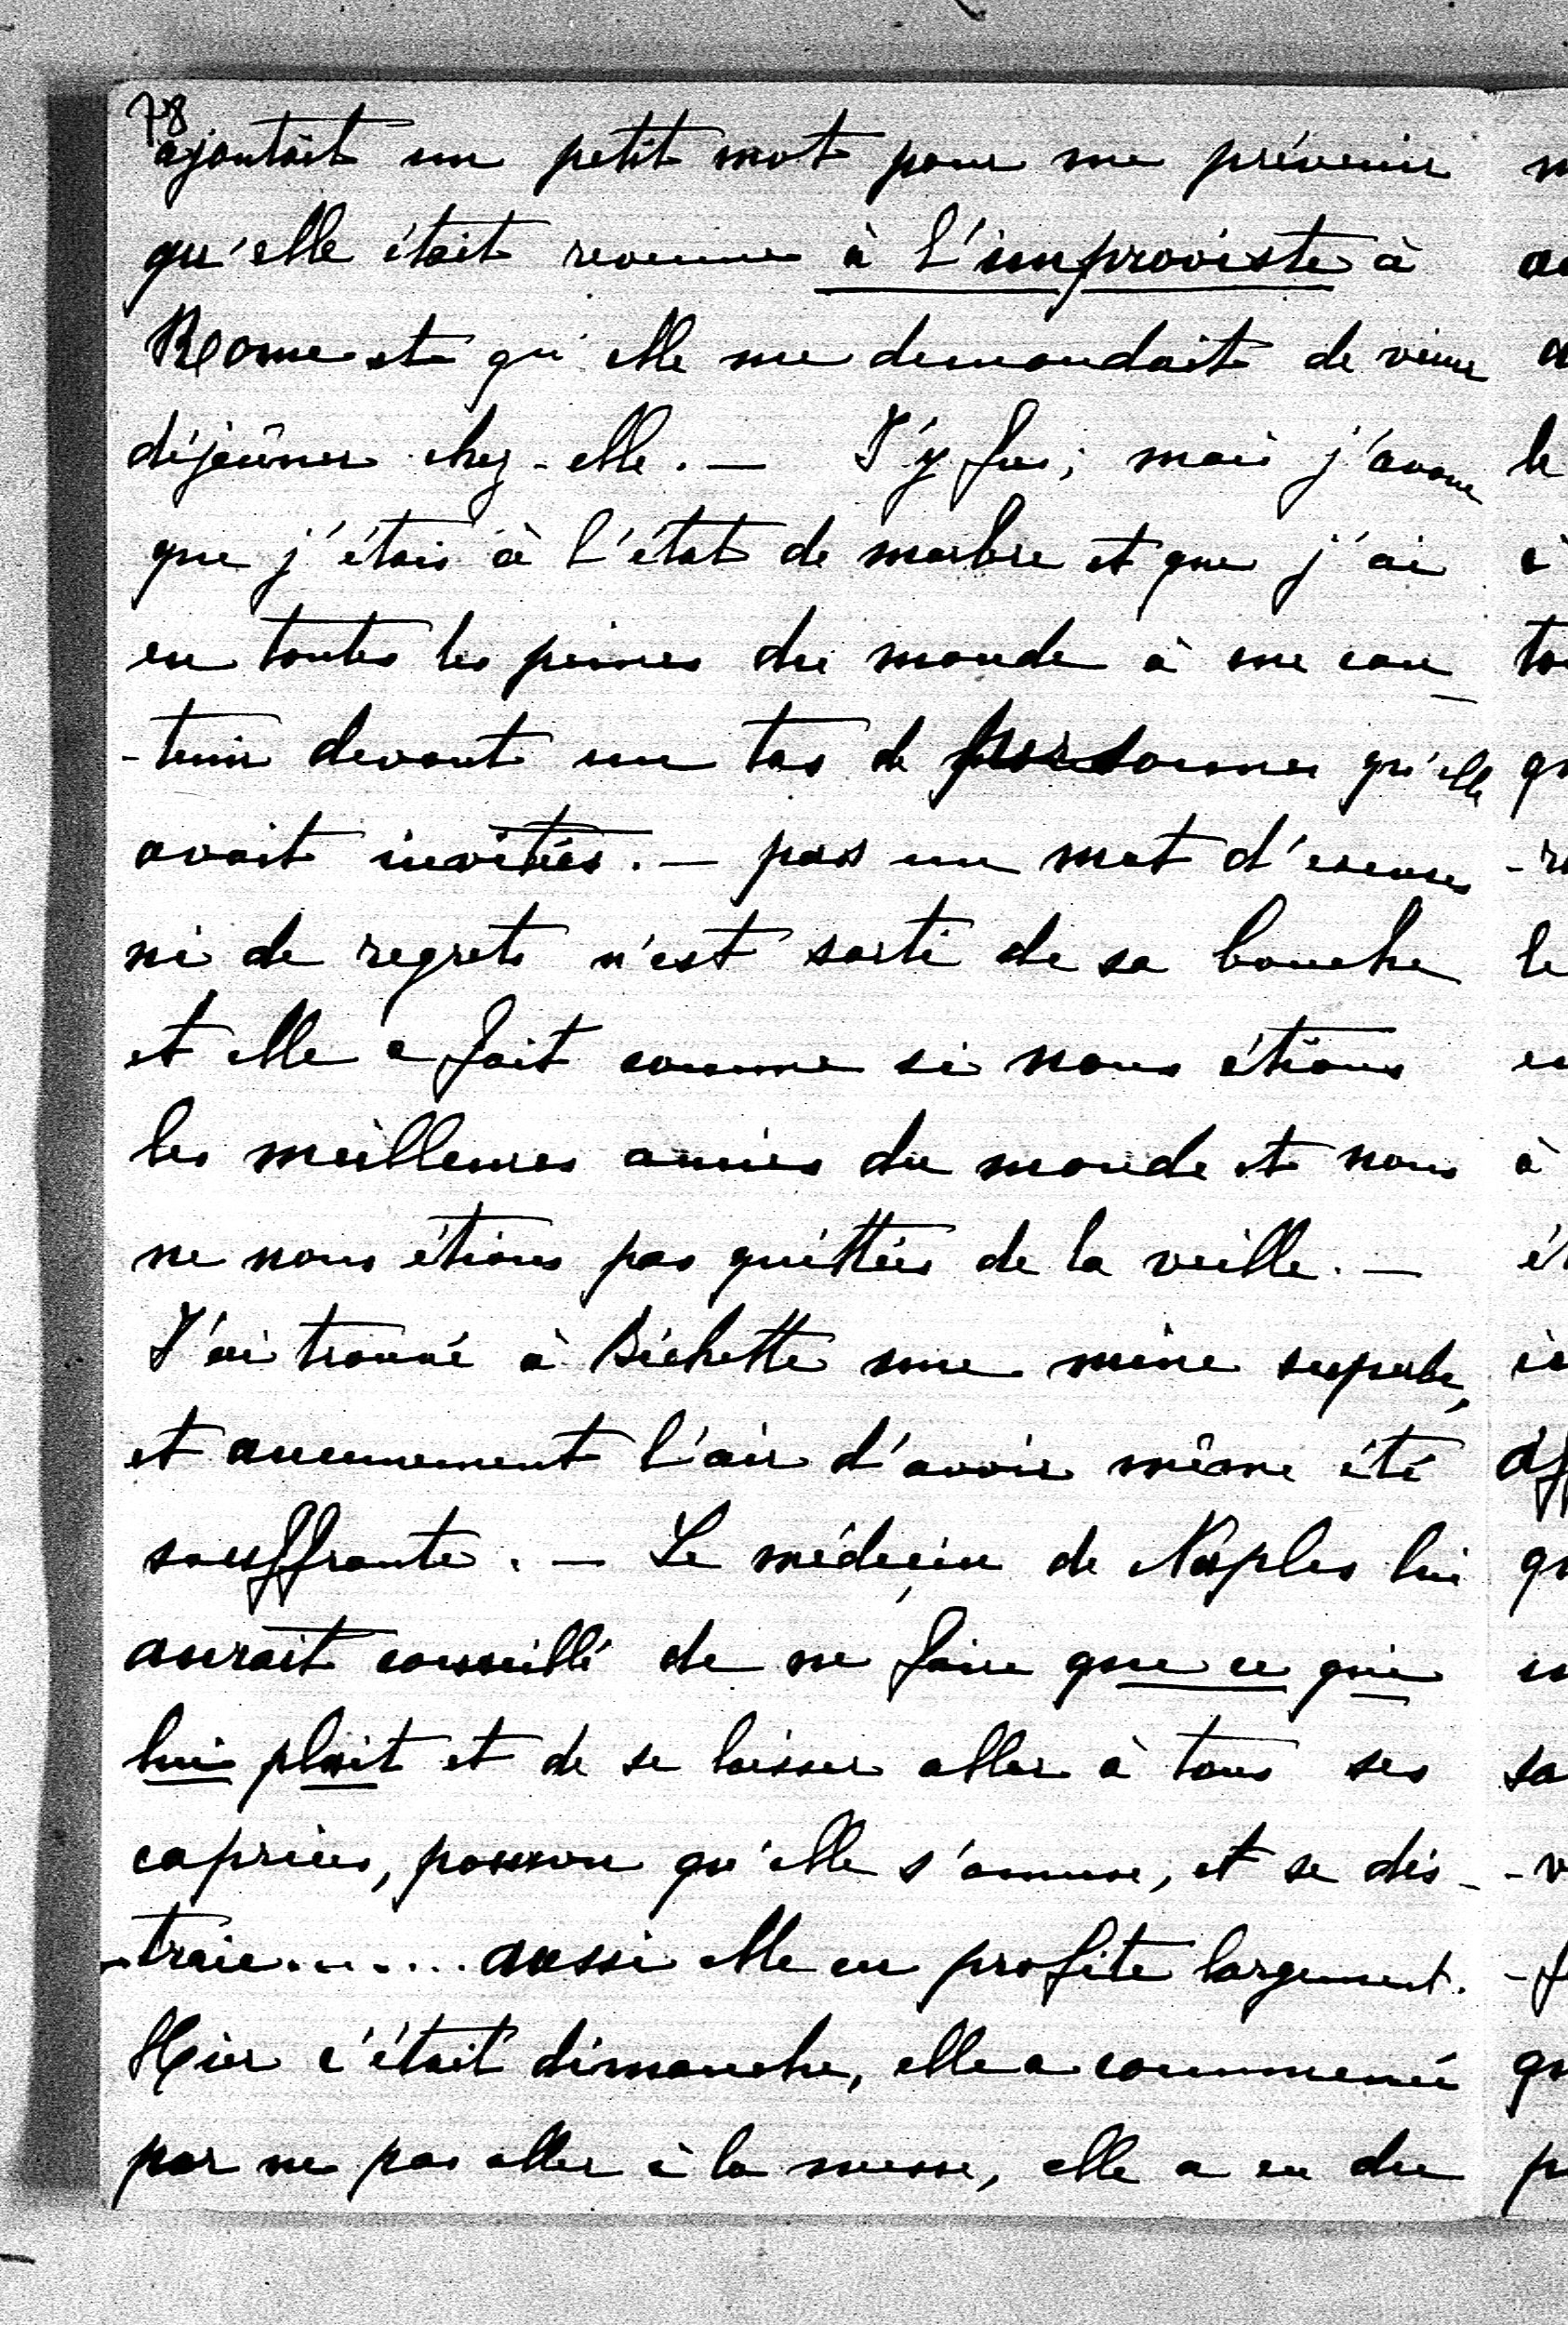 78
ajoutait un petit mot pour me prévenir
qu'elle était revenue à l'improviste à
Rome et qu'elle me demandait de venir
déjeûner chez-elle. — J'y fus; mais j'avoue
que j'étais à l'état de marbre et que j'ai
eu toutes les peines du monde à me con_
-tenir devant un tas de personnes qu'elle
avait invitées. — pas un mot d'excuses
ni de regrets n'est sorti de sa bouche
et elle a fait comme si nous étions
les meilleures amies du monde et nous
ne nous étions pas quittées de la veille. —
J'ai trouvé à Bichette une mine superbe,
et aucunement l'air d'avoir même été
souffrante. — Le médeçin de Naples lui
aurait conseillé de ne faire que ce qui
lui plait et de se laisser aller à tous ses
caprices, pourvu qu'elle s'amuse, et se dis_
-traie....... aussi elle en profite largement.
Hier c'était dimanche, elle a commencé
par ne pas aller à la messe, elle a eu du